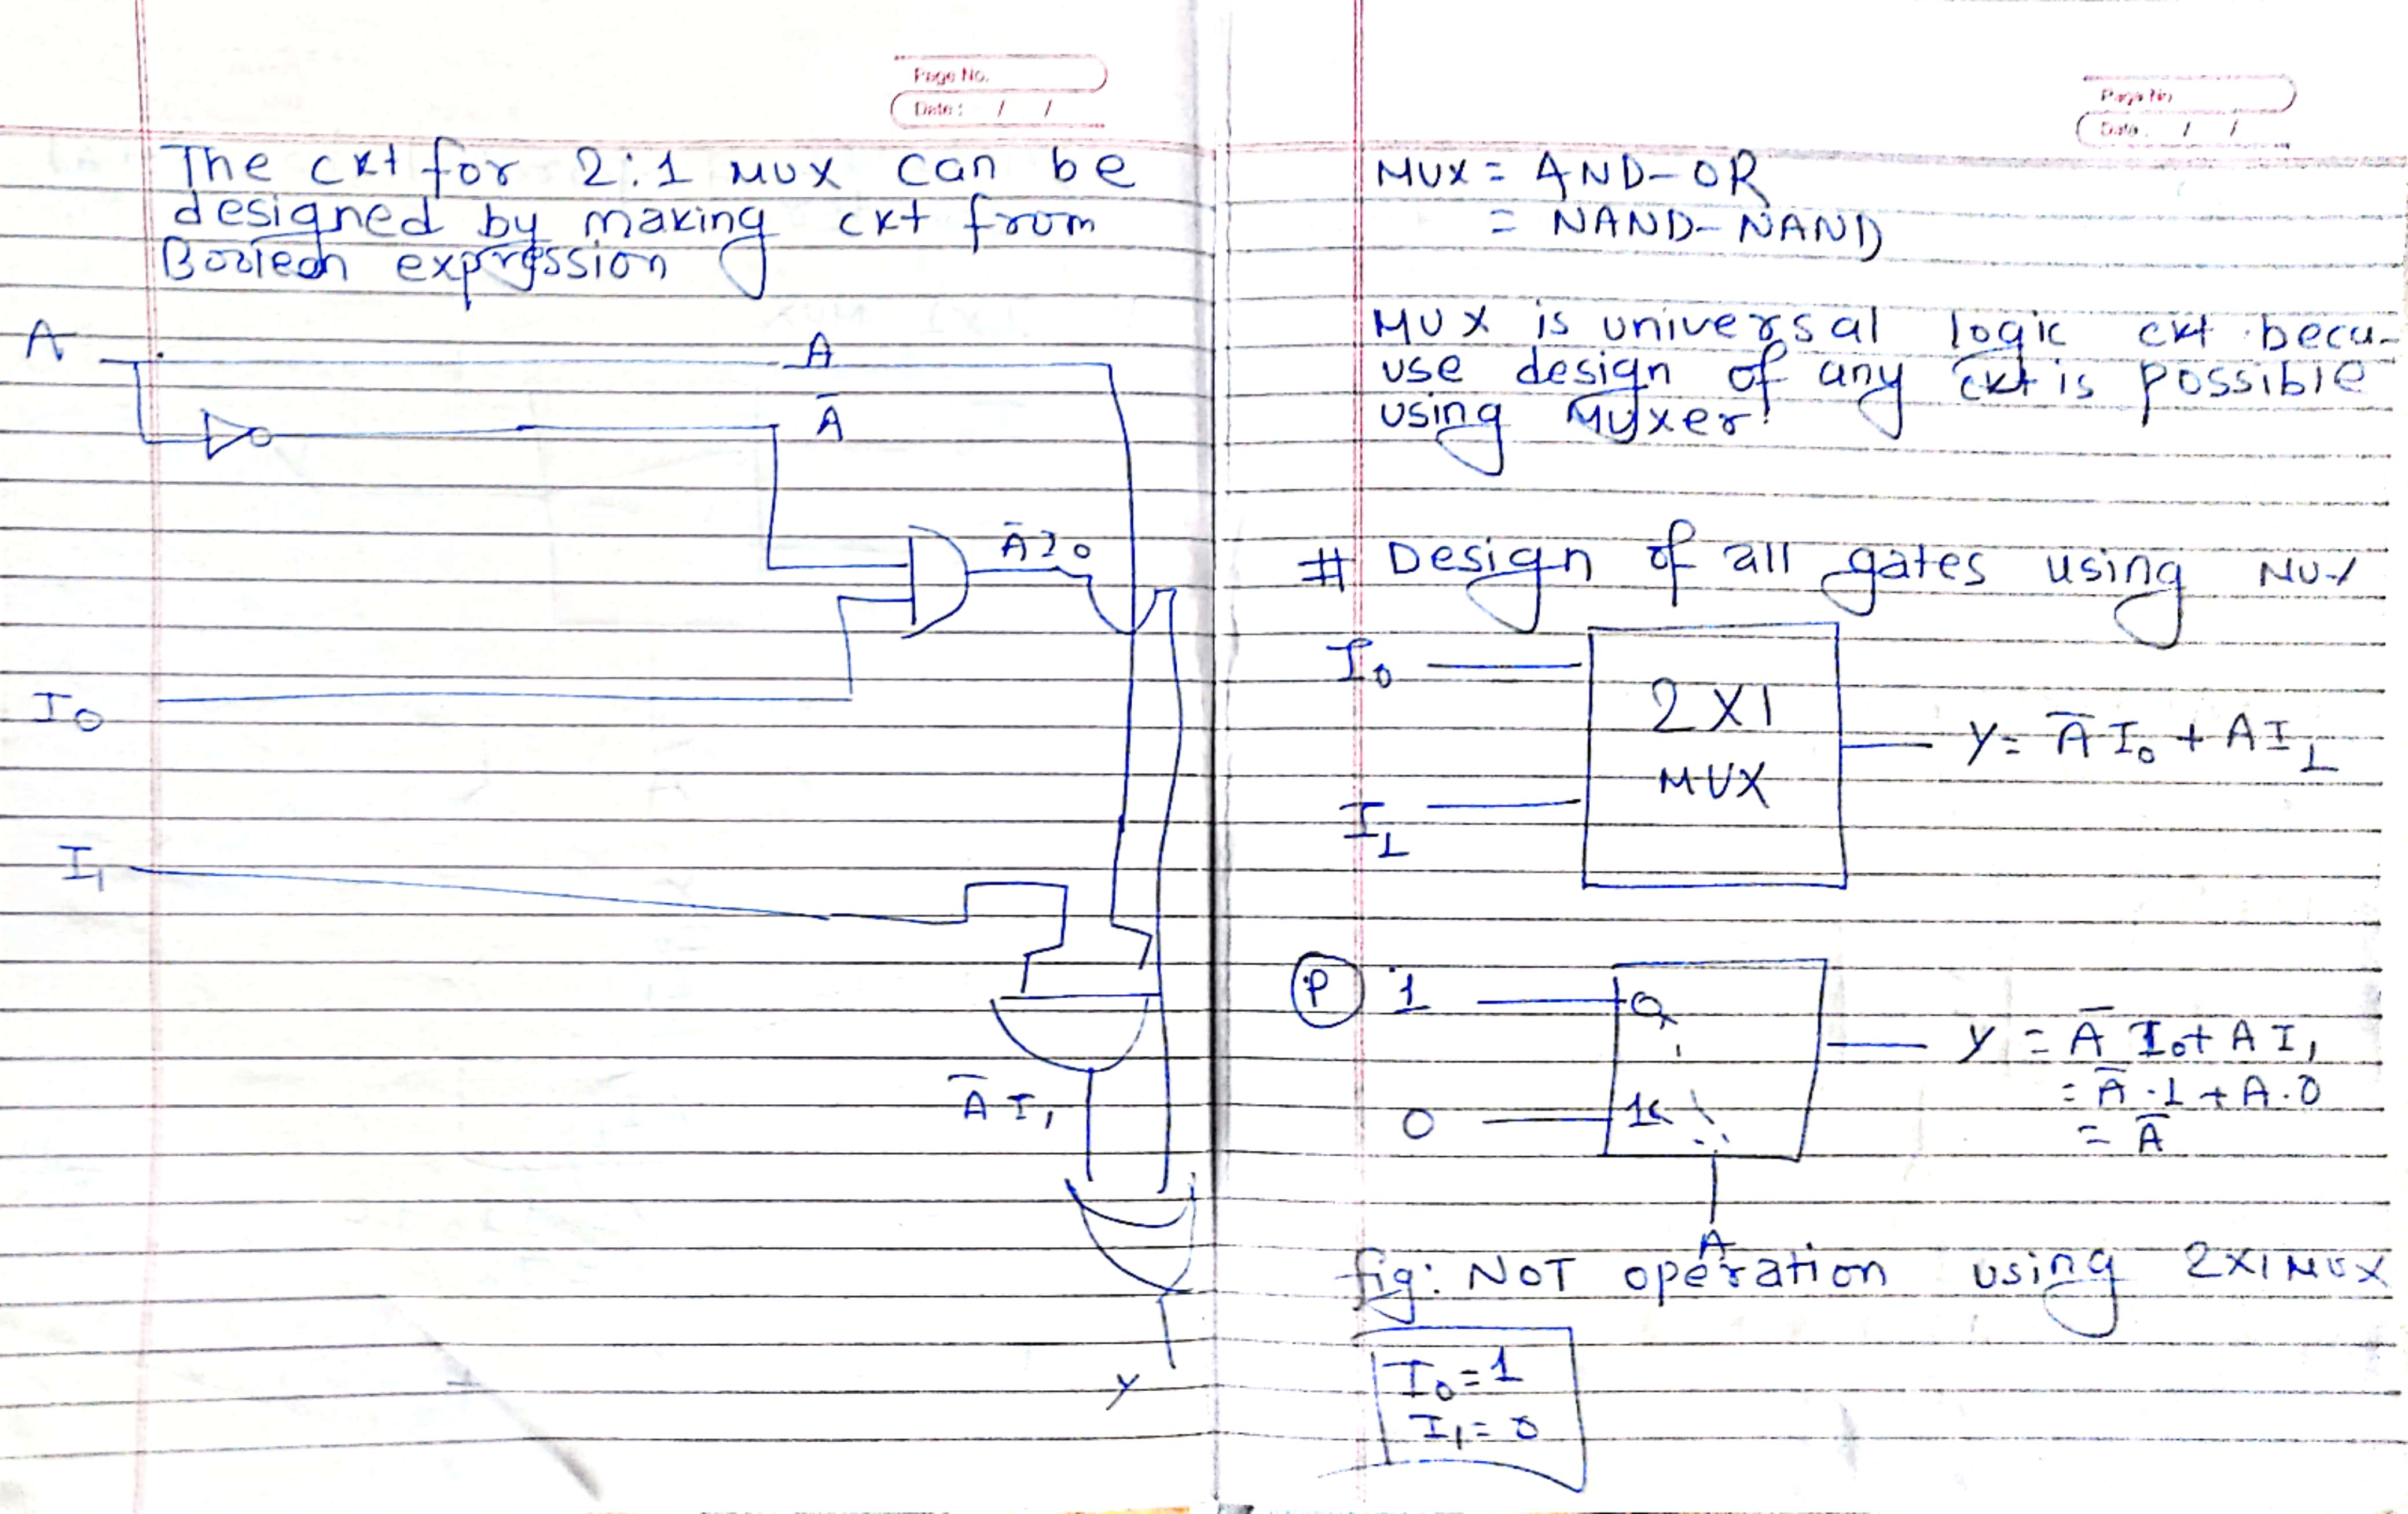 Page No.
Date: / /
The ckt for 2:1 MUX can be
designed by making ckt from
Boolean expression
A
A
Ā
ĀI₀
I₀
I₁
ĀI₁
Y
Page No
Date. / /
MUX = AND-OR
= NAND-NAND
MUX is universal logic ckt becu-
use design of any ckt is possible
using Muxer!
# Design of all gates using MUX
I₀
2X1
MUX
y = ĀI₀ + AI₁
I₁
(P) 1
0
y = Ā I₀ + A I₁
= Ā·1 + A·0
= Ā
0
1
A
fig: NOT operation using 2X1 MUX
I₀ = 1
I₁ = 0